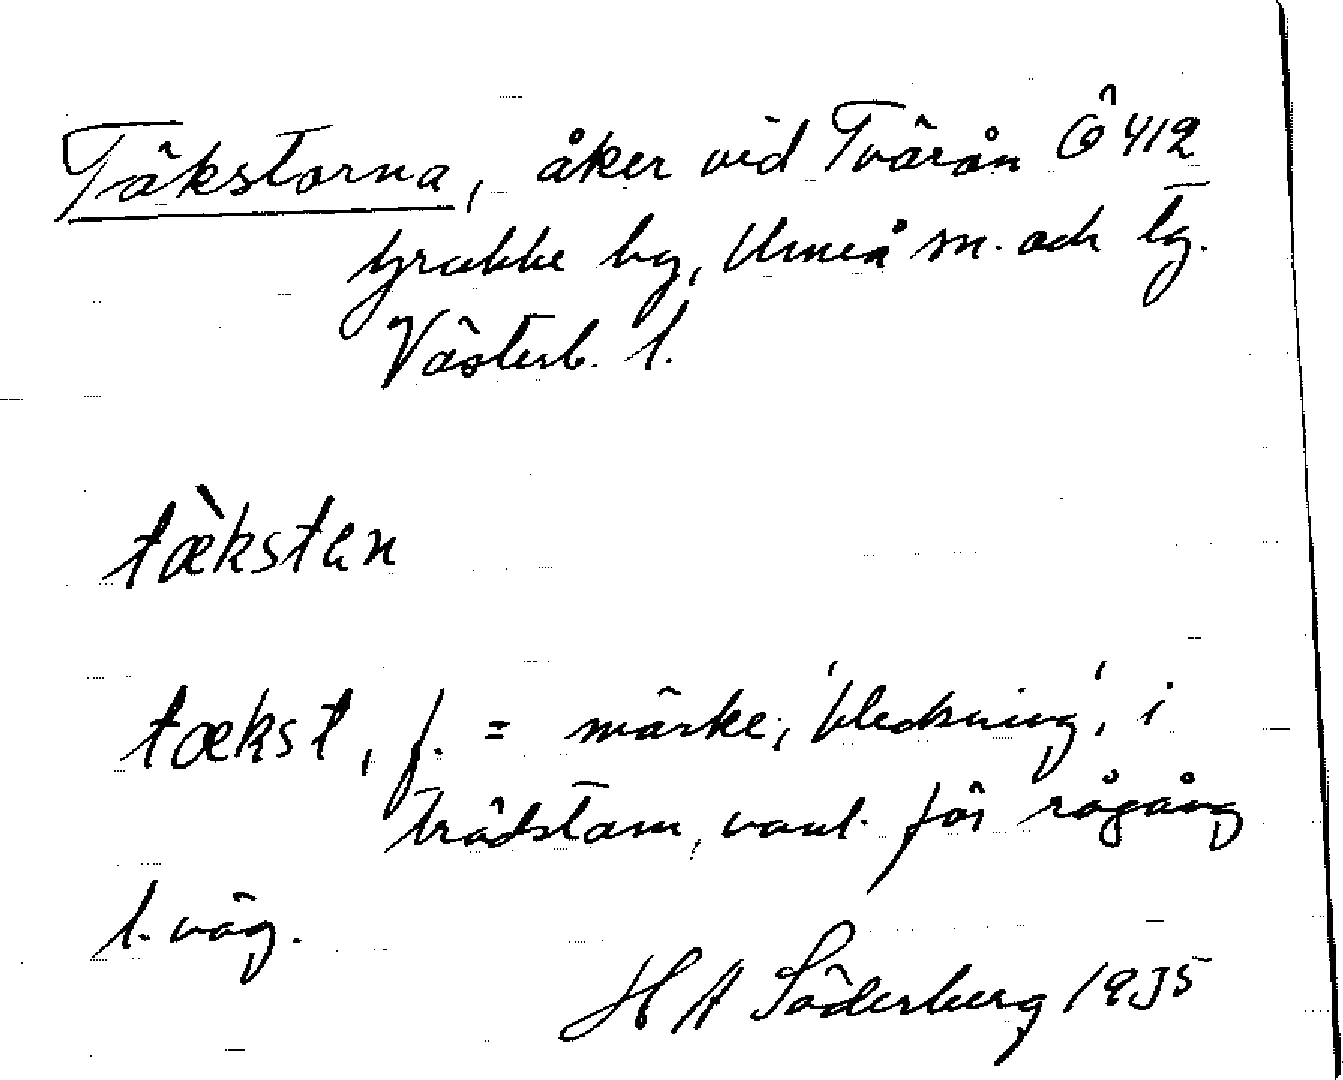 Täkstorna, åker vid Tvärån Ö 412
Grubbe by, Umeå sn. och tg.
Västerb. l.
tæ̀kstɑn
tækst, f. = märke, 'bleckning', i
trädstam, vanl. för rågång
l. väg.
H A Söderberg 1935